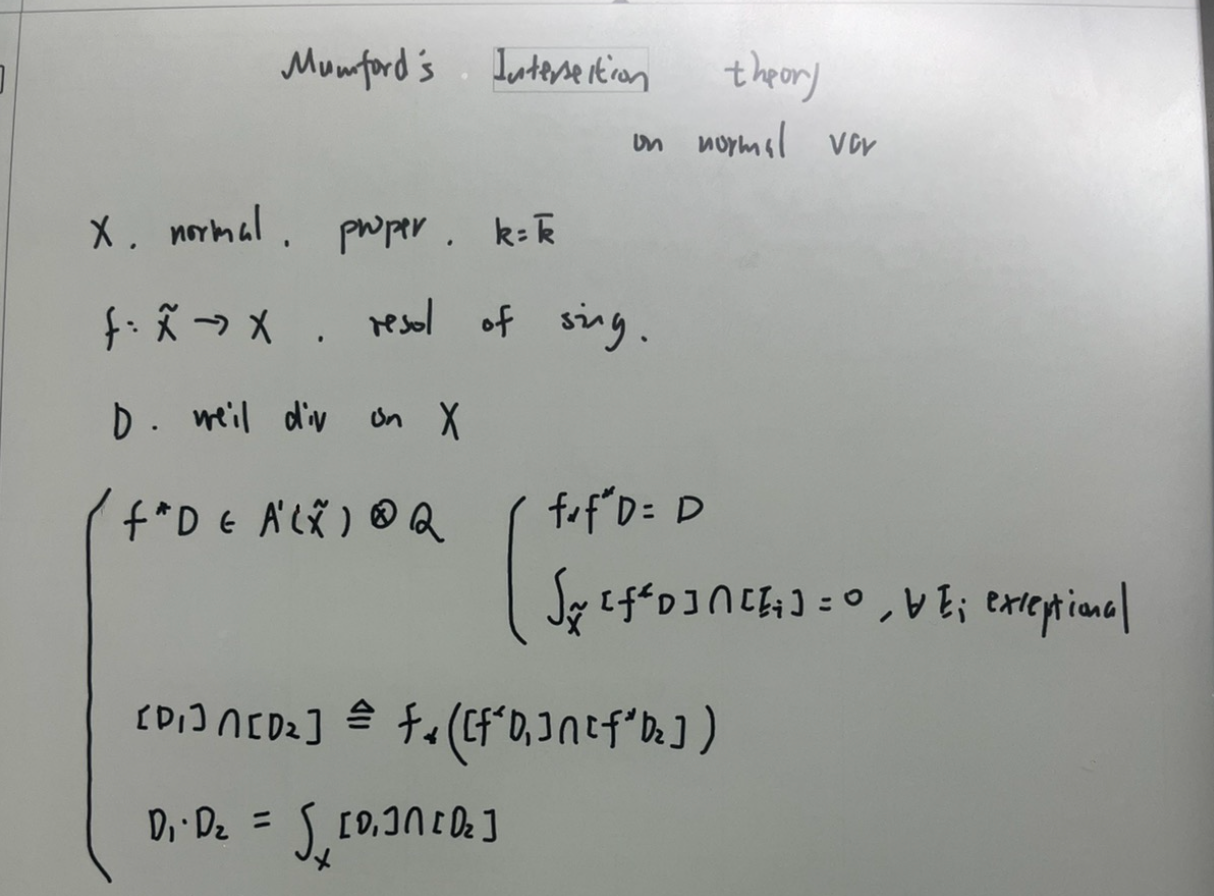 Mumford's Intersection theory
on normal var
X. normal. proper. k = k̄
f: X̃ → X. resol of sing.
D. weil div on X
f*D ∈ A¹(X̃) ⊗ Q
f_*f*D = D
∫_X̃ [f*D] ∩ [E_i] = 0, ∀ E_i exceptional
[D₁] ∩ [D₂] ≙ f_*([f*D₁] ∩ [f*D₂])
D₁·D₂ = ∫_X [D₁] ∩ [D₂]